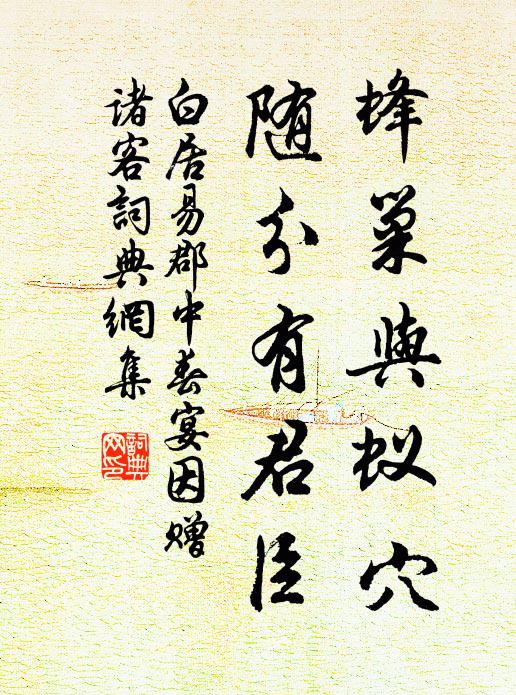 蜂巢與蚁穴
随分有君臣
白居易郡中春宴因赠
诸客詞典網集
詞典网印